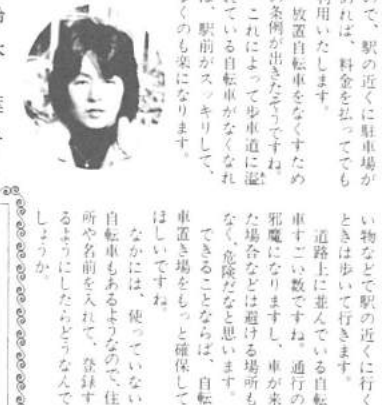 い物などで駅の近くに行く
ときは歩いて行きます。
道路上に並んでいる自転
車すごい数ですね。通行の
邪魔になりますし、車が来
た場合などは避ける場所も
なく、危険だなと思います。
できることならば、自転
車置き場をもっと確保して
ほしいですね。
なかには、使っていない
自転車もあるようなので、住
所や名前を入れて、登録す
るようにしたらどうなんで
しょうか。
ので、駅の近くに駐車場が
れば、料金を払ってでも
利用いたします。
放置自転車をなくすため
条例が出きたそうですね。
これによって歩車道に溢
れている自転車がなくなれ
、駅前がスッキリして、
くのも楽になります。